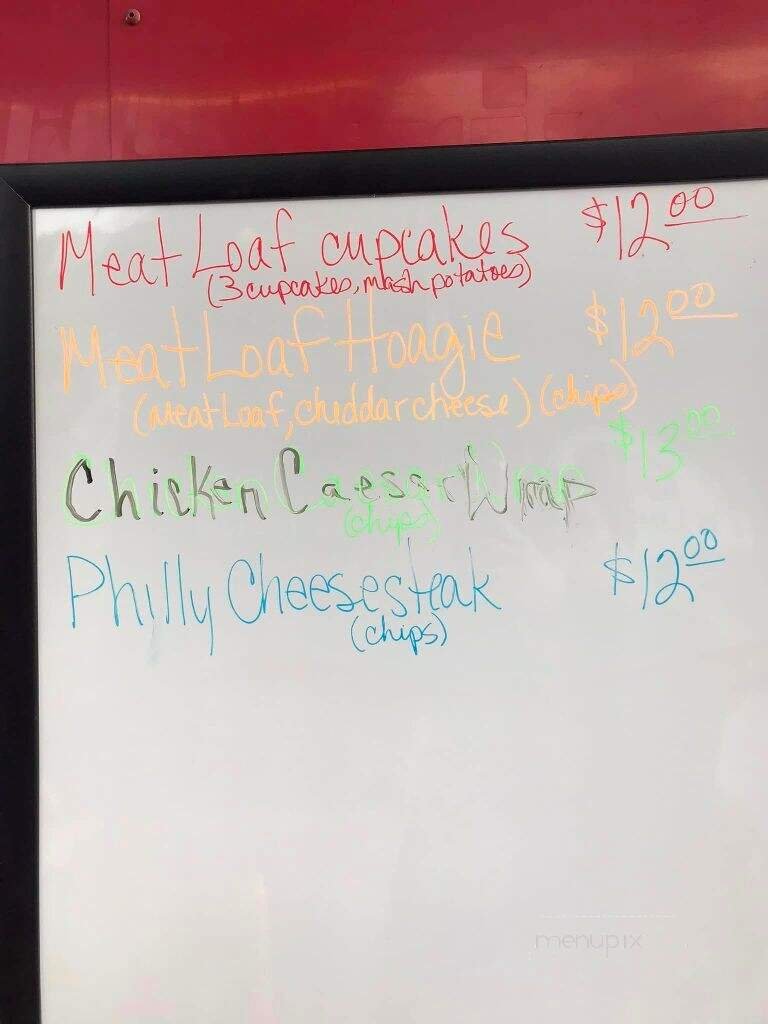 Meat Loaf cupcakes $12.00
(3 cupcakes, mash potatoes)
Meat Loaf Hoagie $12.00
(Meat Loaf, chuddar cheese) (chips)
Chicken Caesar Wrap $13.00
(chips)
Philly Cheesesteak $12.00
(chips)
menupix